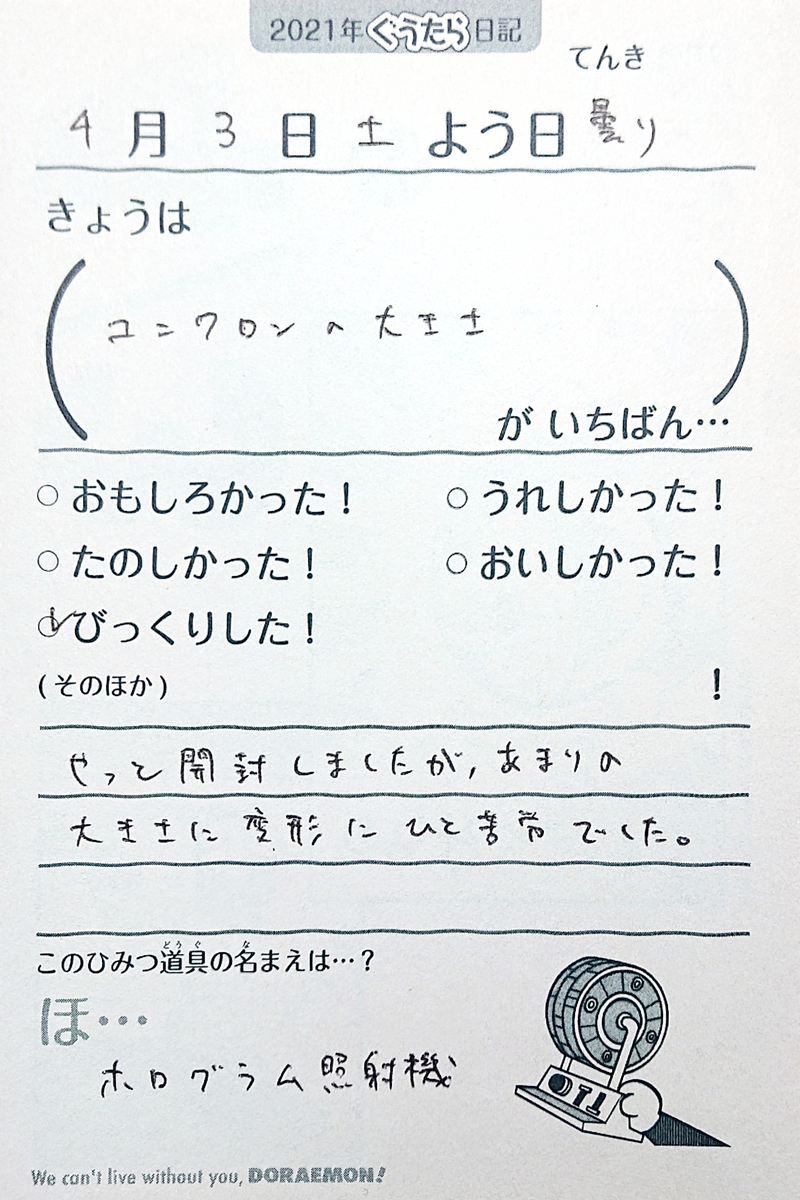 2021年ぐうたら日記
てんき
4月3日土よう日 曇り
きょうは
ユニクロンの大きさ
がいちばん…
○おもしろかった！ ○うれしかった！
○たのしかった！ ○おいしかった！
○びっくりした！
(そのほか) ！
やっと開封しましたが,あまりの
大きさに変形にひと苦労でした。
どうぐ な
このひみつ道具の名まえは…？
ほ…
ホログラム照射機
We can't live without you, DORAEMON!